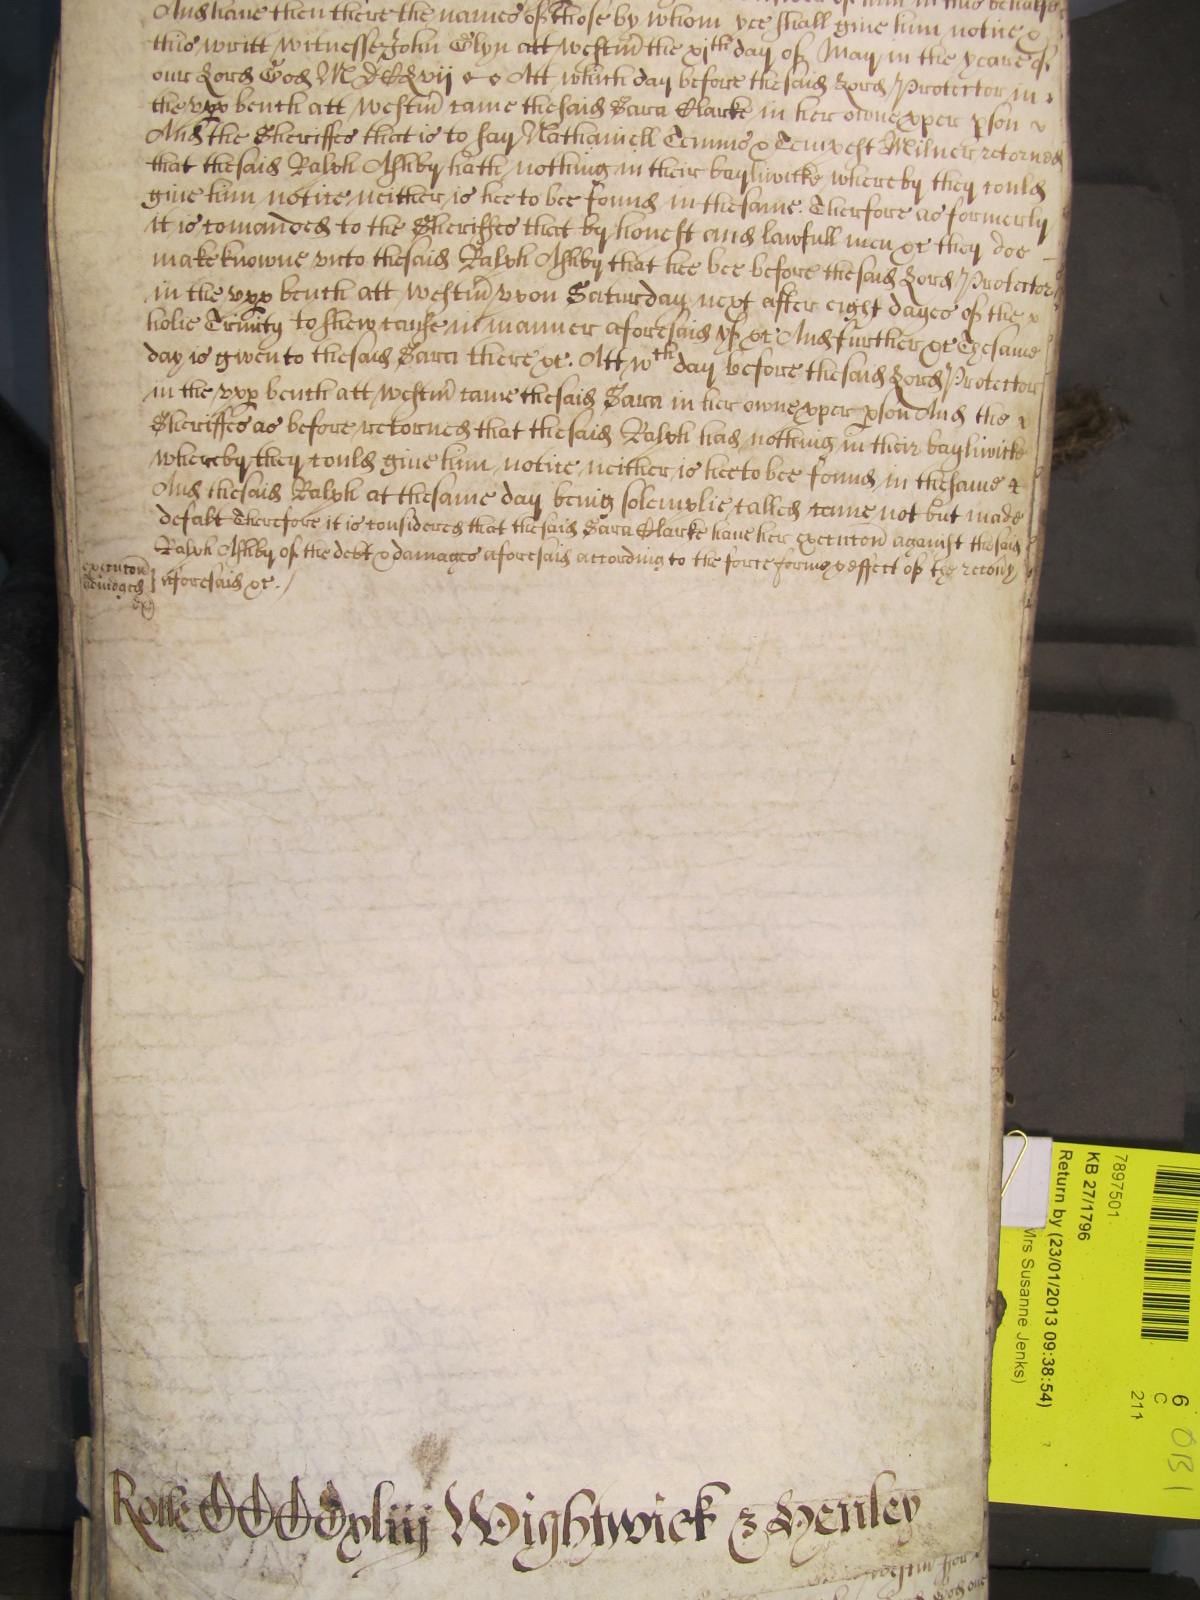 And have then there the names of those by whom yee shall give him notice &
this writt Witnesse John Glyn att Westm̄ the xjth day of May in the yeare of
our Lord God M DC Lvij Att which day before the said Lord Protector in
the upp bench att Westm̄ came the said Sara Clarke in her owne pper pson
And the Sheriffes that is to say Nathaniell Temms & Tempest Milner retorned
that the said Ralph Ashby hath nothing in their bayliwicke whereby they could
give him notice neither is hee to bee found in the same. Therfore as formerly
it is comanded to the Sheriffes that by honest and lawfull men &c they doe
make knowne unto the said Ralph Ashby that hee bee before the said Lord Protector
in the upp bench att Westm̄ upon Saturday next after eight dayes of the
holie Trinity to shew cause in manner aforesaid yf &c And further &c The same
day is given to the said Sara there &c. Att wch day before the said Lord Protector
in the upp bench att Westm̄ came the said Sara in her owne pper pson And the
Sheriffes as before retorned that the said Ralph had nothing in their bayliwicke
whereby they could give him notice neither is hee to bee found in the same &
And the said Ralph at the same day being solemplie called came not but made
defalt Therefore it is considered that the said Sara Clarke have her execucon against the said
Ralph Ashby of the debt & damages aforesaid according to the force forme & effect of the recovy
aforesaid &c.
execucon
adiudged
Rolle CCCCxliij Wightwick & Henley
7897501
KB 27/1796
Return by (23/01/2013 09:38:54)
Mrs Susanne Jenks)
6
C
211